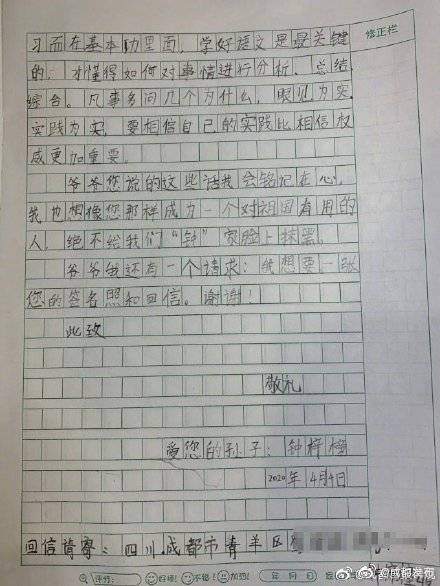 修正栏
习而在基本功里面，学好语文是最关键
的，才懂得如何对事情进行分析、总结
综合。凡事多问几个为什么，眼见为实
实践为实，要相信自己的实践比相信权
威更加重要。
爷爷您说的这些话我会铭记在心，
我也想像您那样成为一个对祖国有用的
人，绝不给我们“钟”家脸上抹黑。
爷爷我还有一个请求：我想要一张
您的签名照和回信。谢谢！
此致
敬礼
爱您的孙子：钟梓
2020年4月4日
回信请寄：四川成都市青羊区
评分： 好棒！ 不错！ 加油！ 年 月 日
@成都发布